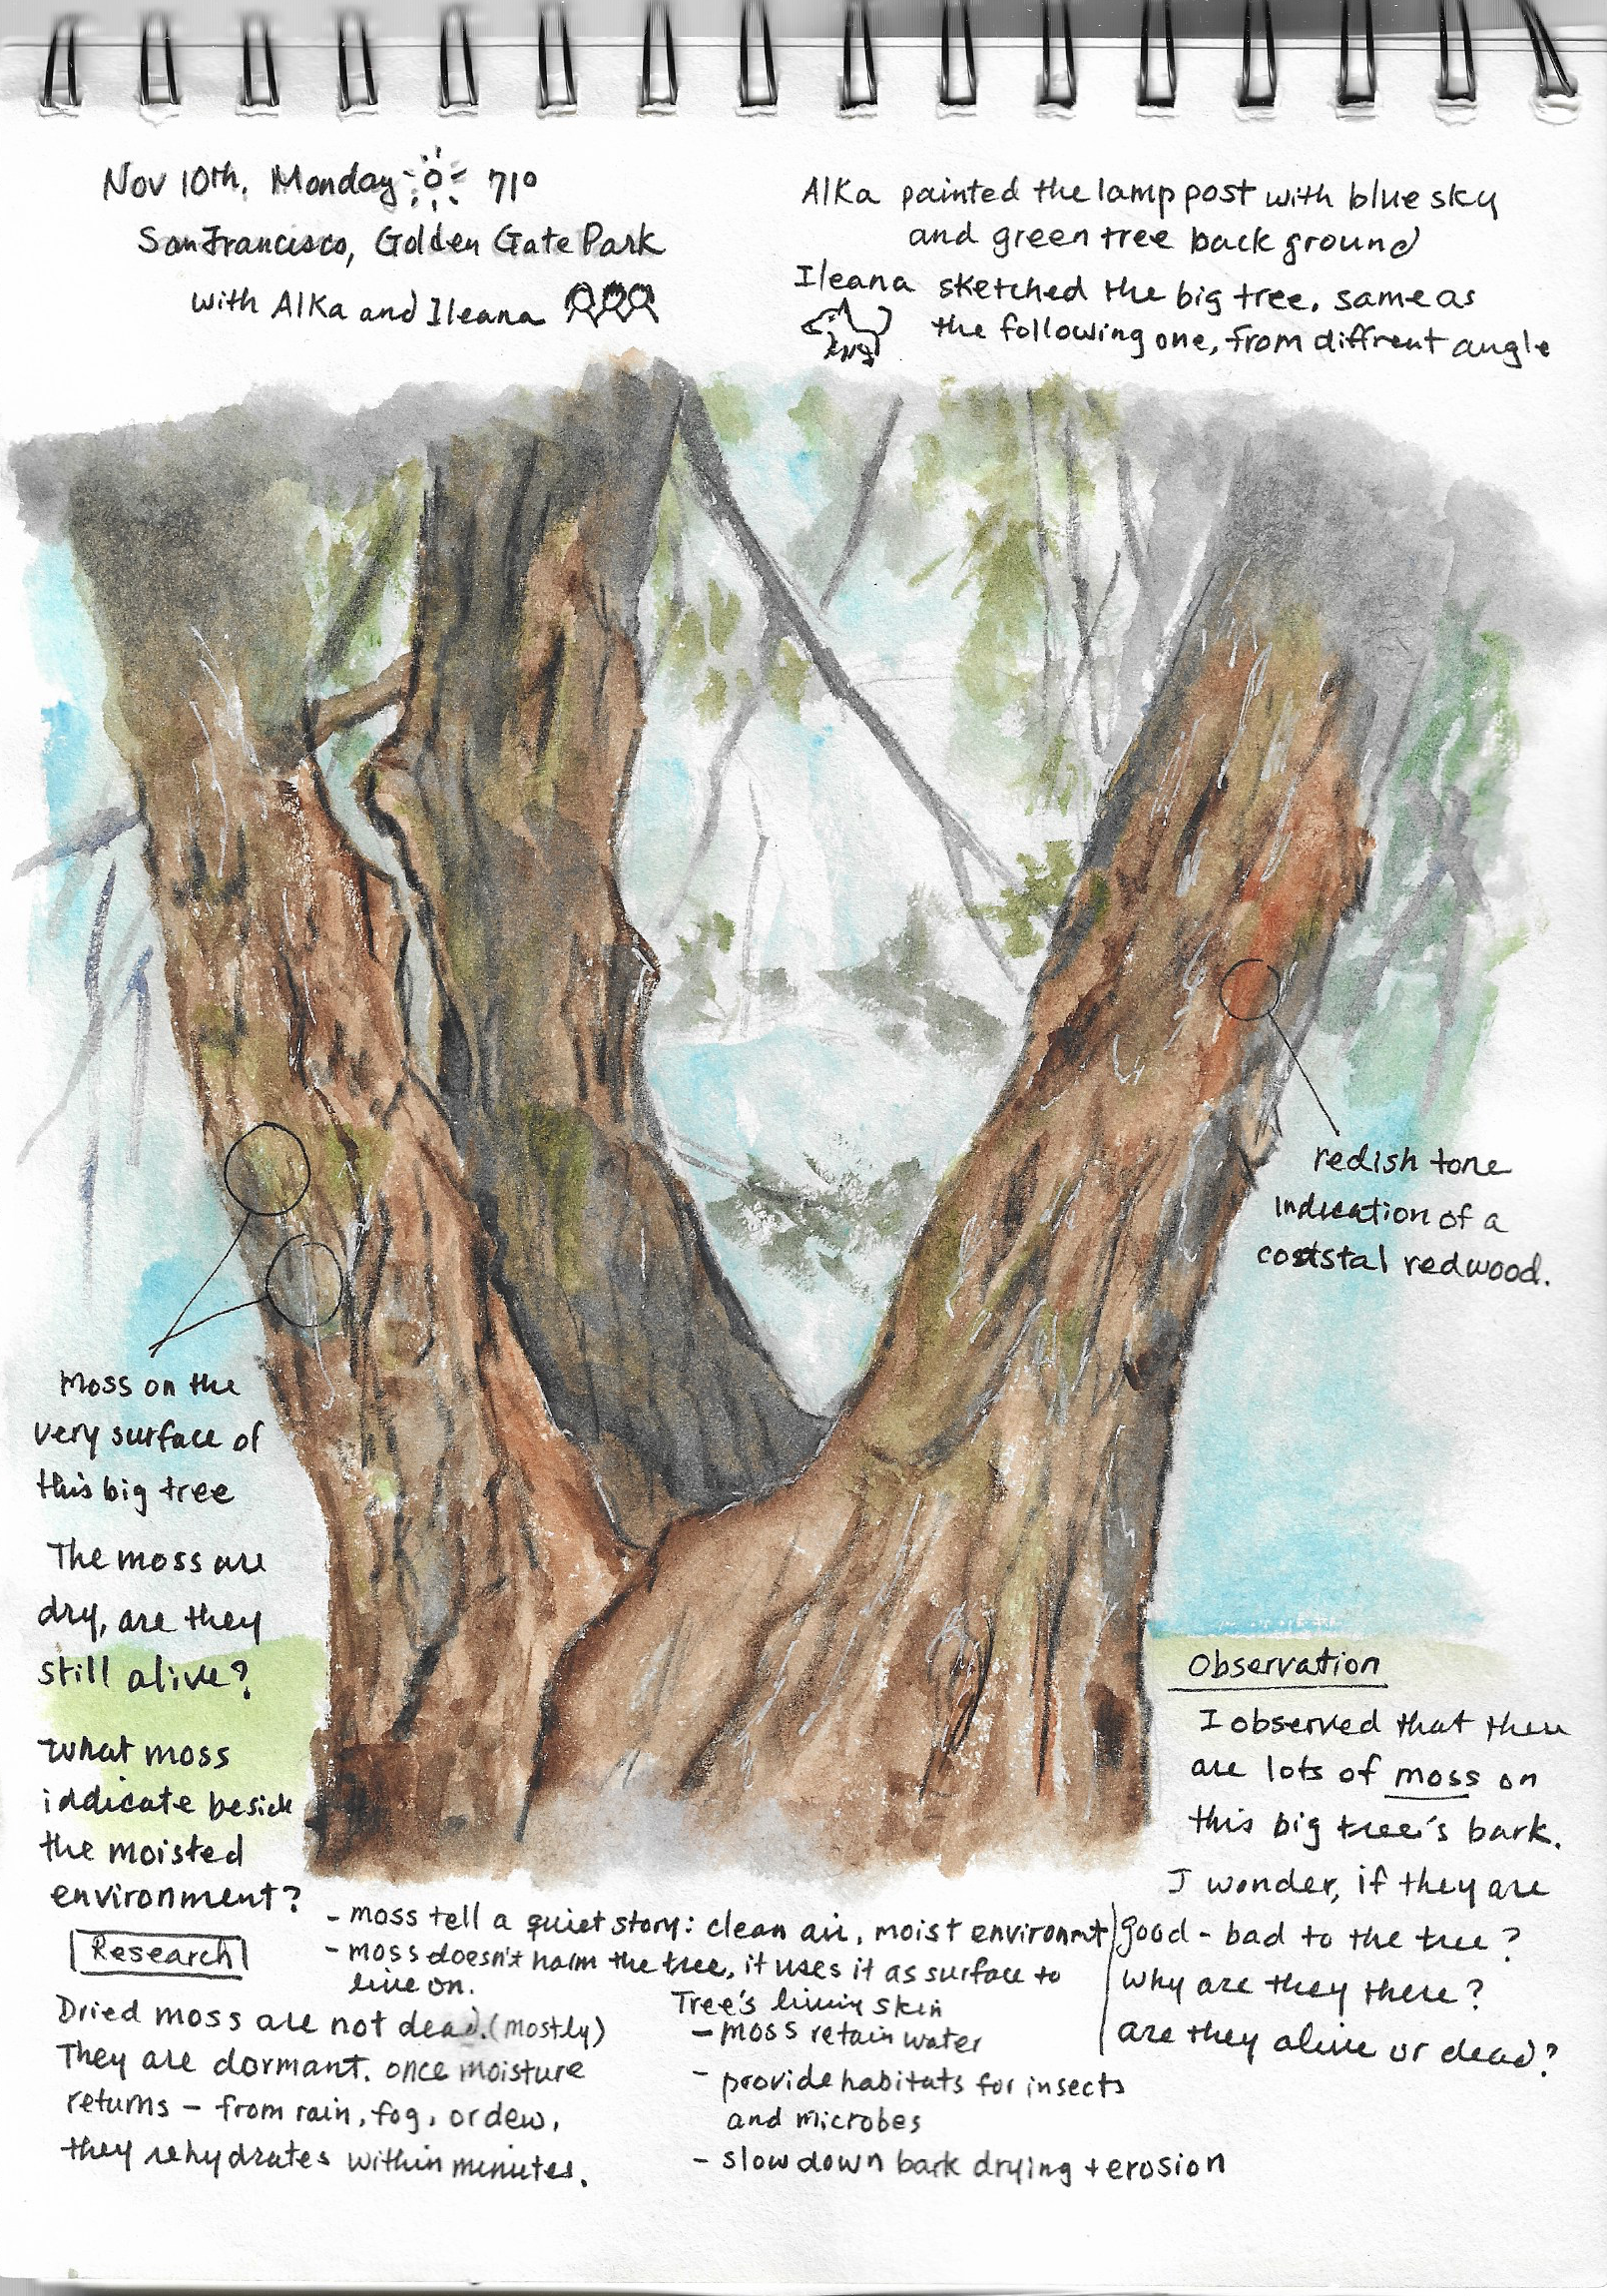 Nov 10th, Monday 71°
San Francisco, Golden Gate Park
with Alka and Ileana
Alka painted the lamp post with blue sky
and green tree back ground
Ileana sketched the big tree, same as
the following one, from diffrent angle
redish tone
Indication of a
coststal redwood.
Moss on the
very surface of
this big tree
The moss are
dry, are they
still alive?
What moss
iddicate beside
the moisted
environment?
Observation
I observed that there
are lots of moss on
this big tree's bark.
I wonder, if they are
good - bad to the tree?
why are they there?
are they alive or dead?
Research
- moss tell a quiet story: clean air, moist environmt
- moss doesn't harm the tree, it uses it as surface to
live on.
Dried moss are not dead. (mostly)
They are dormant. once moisture
returns - from rain, fog, or dew,
they rehydrates within minutes.
Tree's living skin
- moss retain water
- provide habitats for insects
and microbes
- slow down bark drying + erosion